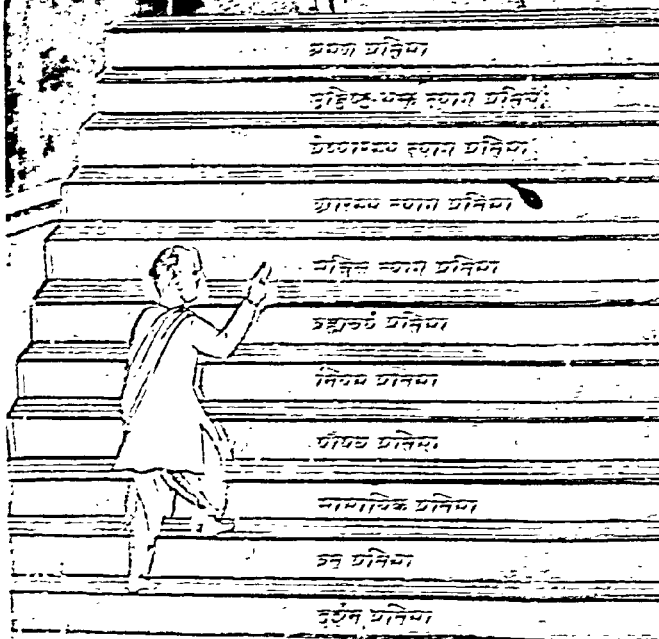 श्रमण प्रतिमा
उद्दिष्ट-भक्त त्याग प्रतिमा
त्याग प्रतिमा
आरम्भ त्याग प्रतिमा
सचित्त त्याग प्रतिमा
ब्रह्मचर्य प्रतिमा
नियम प्रतिमा
पौषध प्रतिमा
सामायिक प्रतिमा
व्रत प्रतिमा
दर्शन प्रतिमा